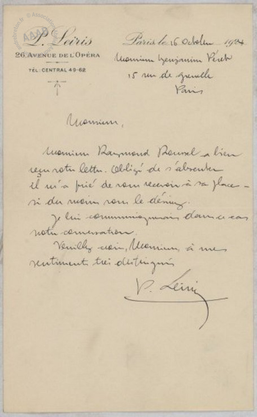 P. Leiris
26 AVENUE DE L'OPÉRA
TÉL: CENTRAL 49-62
Paris le 15 Octobre 192
Monsieur Benjamin Péret
15 rue de Grenelle
Paris
Monsieur,
Monsieur Raymond Roussel a bien
reçu votre lettre. Obligé de s'absenter
il m'a prié de vous recevoir à sa place –
si du moins vous le désirez.
Je lui communiquerais dans ce cas
notre conversation.
Veuillez croire, Monsieur, à mes
sentiments très distingués
P. Leiris